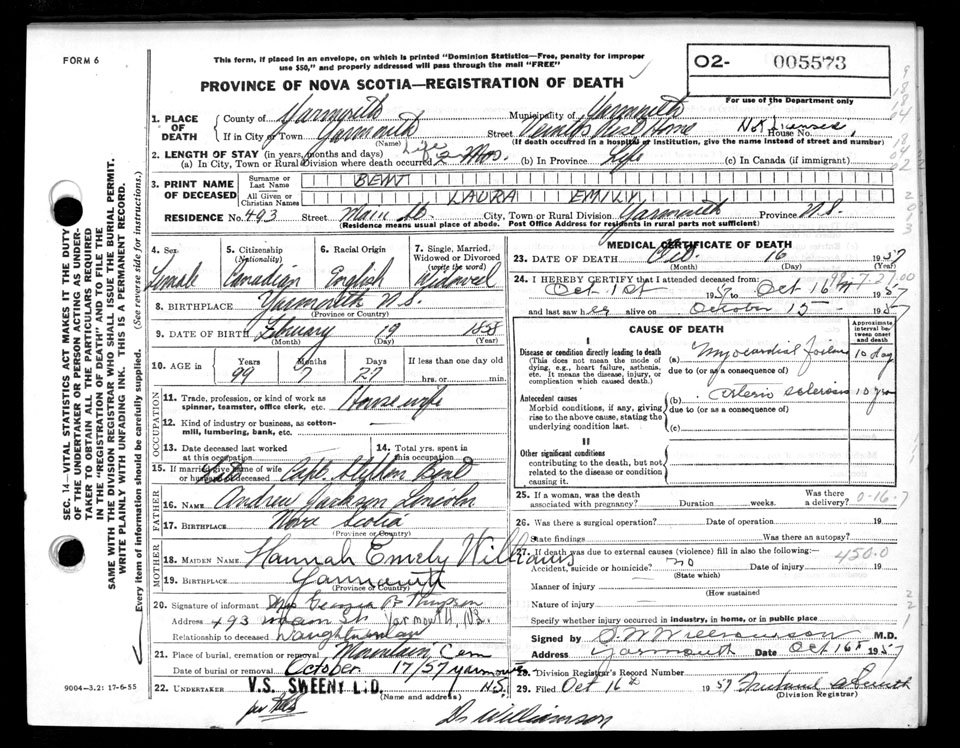 FORM 6
This form, if placed in an envelope, on which is printed "Dominion Statistics—Free, penalty for improper
use $50," and properly addressed will pass through the mail "FREE"
O2- 005573
For use of the Department only
PROVINCE OF NOVA SCOTIA—REGISTRATION OF DEATH
1. PLACE OF DEATH
County of Yarmouth Municipality of Yarmouth
If in City or Town Yarmouth (Name) Street Rest Home House No. Not Licensed
(If death occurred in a hospital or institution, give the name instead of street and number)
2. LENGTH OF STAY (in years, months and days) Life
(a) In City, Town or Rural Division where death occurred 2 Mos. (b) In Province Life (c) In Canada (if immigrant)
3. PRINT NAME OF DECEASED
Surname or Last Name BENT
All Given or Christian Names LAURA EMILY
RESIDENCE No. 493 Street Main St. City, Town or Rural Division Yarmouth Province N.S.
(Residence means usual place of abode. Post Office Address for residents in rural parts not sufficient)
4. Sex Female
5. Citizenship (Nationality) Canadian
6. Racial Origin English
7. Single, Married, Widowed or Divorced (write the word) Widowed
8. BIRTHPLACE Yarmouth N.S.
(Province or Country)
9. DATE OF BIRTH February 19 1858
(Month) (Day) (Year)
10. AGE in Years 99 Months 7 Days 27 If less than one day old hrs. or min.
11. Trade, profession, or kind of work as spinner, teamster, office clerk, etc. Housewife
12. Kind of industry or business, as cotton-mill, lumbering, bank, etc. —
13. Date deceased last worked at this occupation
14. Total yrs. spent in this occupation
15. If married give name of wife or husband of deceased Capt. Bent
FATHER
16. NAME Andrew Jackson Lincoln
17. BIRTHPLACE Nova Scotia
(Province or Country)
MOTHER
18. MAIDEN NAME Hannah Emely Williams
19. BIRTHPLACE Yarmouth
(Province or Country)
20. Signature of informant Mrs
Address 493 Main St. Yarmouth, N.S.
Relationship to deceased Daughter in law
21. Place of burial, cremation or removal Mountain Cem
Date of burial or removal October 17/57 Yarmouth N.S.
22. UNDERTAKER V.S. SWEENY L.D.
(Name and address)
Dr Williamson
MEDICAL CERTIFICATE OF DEATH
23. DATE OF DEATH Oct. 16 1957
(Month) (Day) (Year)
24. I HEREBY CERTIFY that I attended deceased from:
Oct 1st 1957 to Oct 16th 1957
and last saw her alive on October 15 - 1957
CAUSE OF DEATH
Approximate interval between onset and death
I
Disease or condition directly leading to death (a) Myocardial failure 10 days
(This does not mean the mode of dying, e.g., heart failure, asthenia, etc. It means the disease, injury, or complication which caused death.)
due to (or as a consequence)
Antecedent causes (b) Arterio sclerosis 10 yrs
Morbid conditions, if any, giving rise to the above cause, stating the underlying condition last.
due to (or as a consequence of)
(c)
II
Other significant conditions
contributing to the death, but not related to the disease or condition causing it.
25. If a woman, was the death associated with pregnancy? Duration weeks. Was there a delivery? 0-16-7
26. Was there a surgical operation? Date of operation 19
State findings Was there an autopsy?
27. If death was due to external causes (violence) fill in also the following:— 450.0
Accident, suicide or homicide? no Date of injury 19
(State which)
Manner of injury
(How sustained)
Nature of injury —
Specify whether injury occurred in industry, in home, or in public place
Signed by Williamson M.D.
Address Yarmouth Date Oct 16th 1957
28. Division Registrar's Record Number
29. Filed Oct 16th 1957
(Division Registrar)
SEC. 14—VITAL STATISTICS ACT MAKES IT THE DUTY
OF THE UNDERTAKER OR PERSON ACTING AS UNDER-
TAKER TO OBTAIN ALL THE PARTICULARS REQUIRED
IN THE "REGISTRATION OF DEATH" AND TO FILE THE
SAME WITH THE DIVISION REGISTRAR WHO SHALL ISSUE THE BURIAL PERMIT.
WRITE PLAINLY WITH UNFADING INK. THIS IS A PERMANENT RECORD.
Every item of information should be carefully supplied. (See reverse side for instructions.)
9004—3.2: 17-6-55